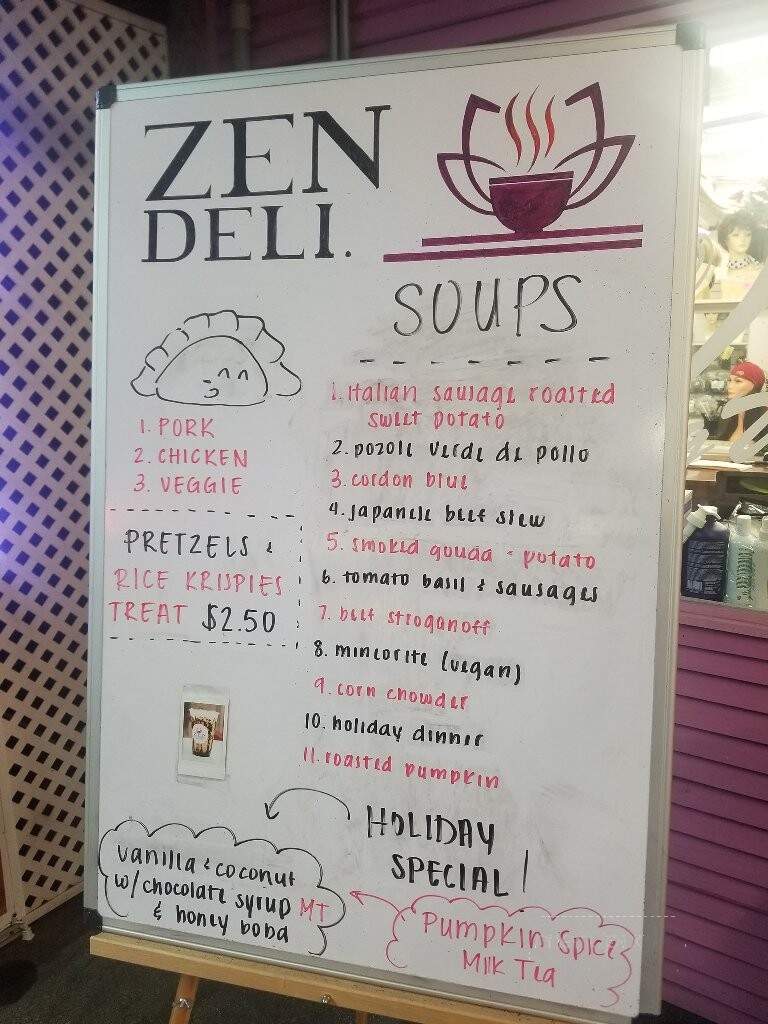 ZEN
DELI.
SOUPS
1. PORK
2. CHICKEN
3. VEGGIE
PRETZELS &
RICE KRISPIES
TREAT $2.50
1. italian sausage roasted
sweet potato
2. pozole verde de pollo
3. cordon blue
4. japanese beef stew
5. smoked gouda + potato
6. tomato basil & sausages
7. beef stroganoff
8. mineorite (vegan)
9. corn chowder
10. holiday dinner
11. roasted pumpkin
HOLIDAY
SPECIAL!
vanilla & coconut
w/chocolate syrup MT
& honey boba
Pumpkin spice
Milk Tea